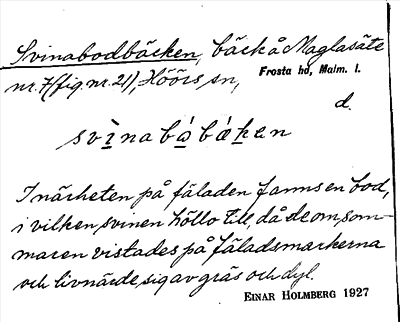 Svinabodbäcken, bäck å Maglasäte
nr. 7 (fig. nr. 21), Höörs sn,
Frosta hd, Malm. l.
d.
svìnabàbæken
I närheten på fäladen fanns en bod,
i vilken svinen höllo till, då de om som-
maren vistades på fäladsmarkerna
och livnärde sig av gräs och dyl.
EINAR HOLMBERG 1927